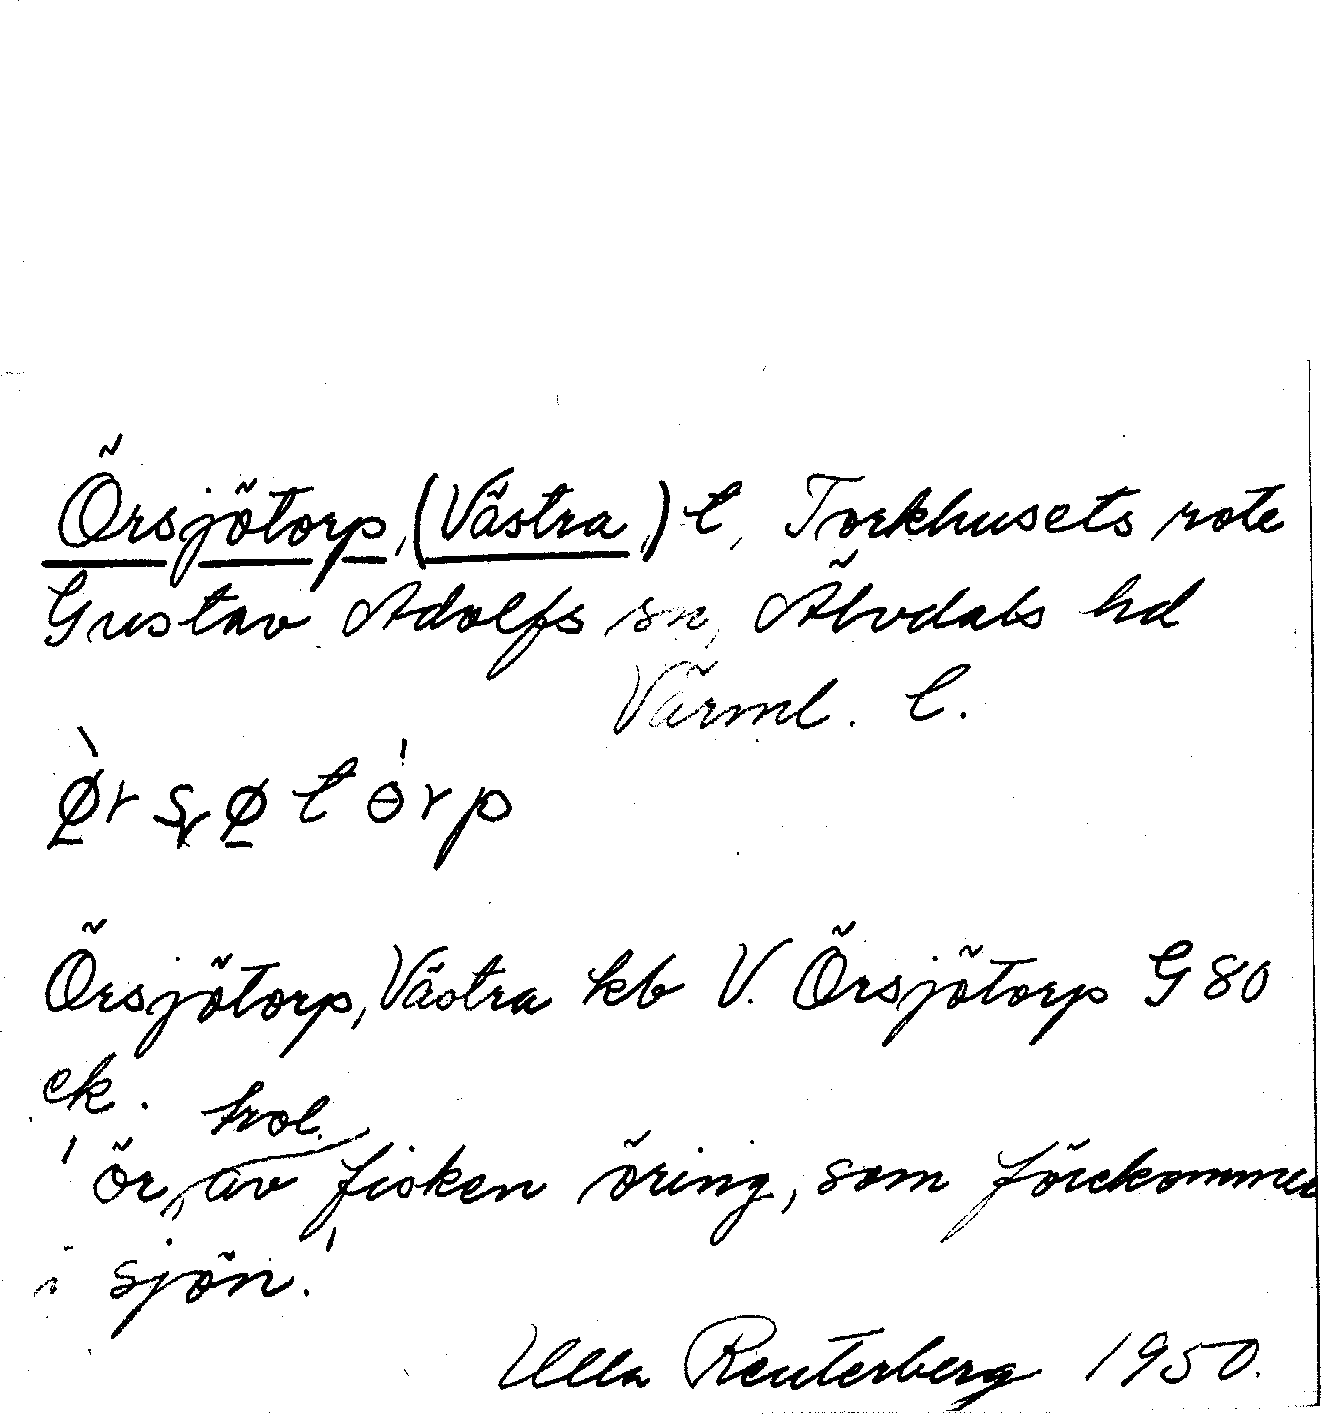 Örsjötorp, (Västra) t, Torkhusets rote
Gustav Adolfs sn, Älvdals hd
Värml. l.
Örsjötorp, Västra kb V. Örsjötorp G 80
ek.
trol.
'ör, av fisken öring, som förekommer
i sjön.'
Ulla Reuterberg 1950.